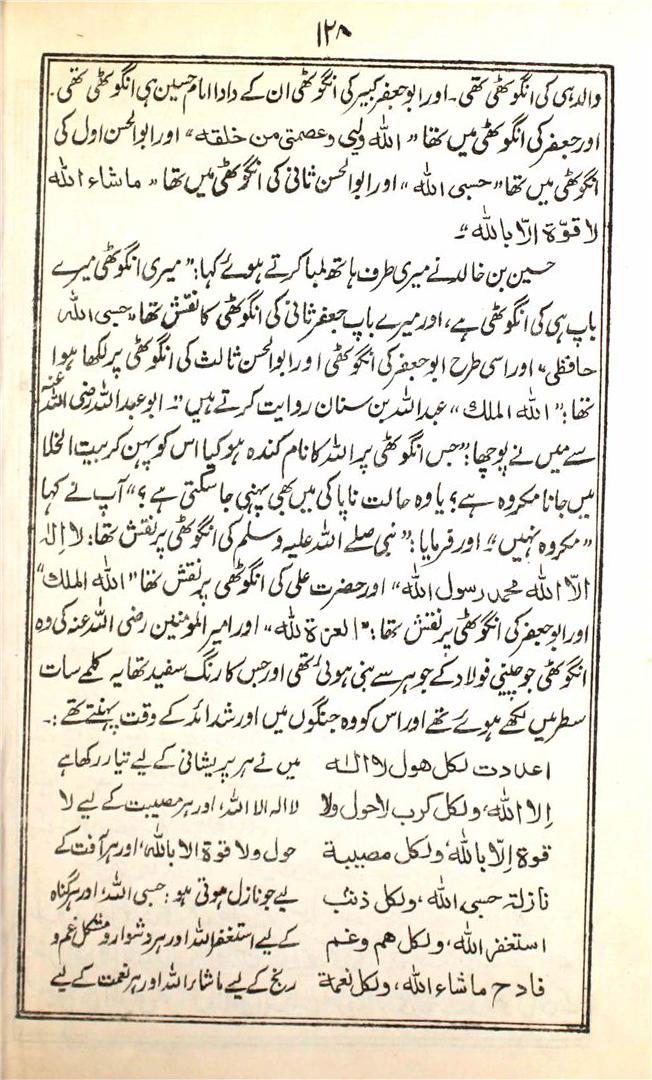 ۱۲۸
والد ہی کی انگوٹھی تھی۔ اور ابو جعفر کبیر کی انگوٹھی ان کے دادا امام حسین ہی انگوٹھی تھی۔
اور جعفر کی انگوٹھی میں تھا " اللہ ولیی وعصمتی من خلقہ" اور ابوالحسن اول کی
انگوٹھی میں تھا "حسبی اللہ" اور ابوالحسن ثانی کی انگوٹھی میں تھا " ماشاء اللہ
لا قوۃ الّا باللہ"۔
حسین بن خالد نے میری طرف ہاتھ لمبا کرتے ہوئے کہا: "میری انگوٹھی میرے
باپ ہی کی انگوٹھی ہے، اور میرے باپ جعفر ثانی کی انگوٹھی کا نقش تھا "حسبی اللہ
حافظی" اور اسی طرح ابو جعفر کی انگوٹھی اور ابوالحسن ثالث کی انگوٹھی پر لکھا ہوا
تھا: "اللہ الملک" عبداللہ بن سنان روایت کرتے ہیں"۔ ابو عبداللہ رضی اللہ عنہ
سے میں نے پوچھا: "جس انگوٹھی پر اللہ کا نام کندہ ہو کیا اس کو پہن کر بیت الخلا
میں جانا مکروہ ہے؟ یا وہ حالت ناپاکی میں بھی پہنی جا سکتی ہے؟" آپ نے کہا
"مکروہ نہیں"۔ اور فرمایا: "نبی صلے اللہ علیہ وسلم کی انگوٹھی پر نقش تھا: لا الہ
الّا اللہ محمد رسول اللہ" اور حضرت علی کی انگوٹھی پر نقش تھا "اللہ الملک"
اور ابو جعفر کی انگوٹھی پر نقش تھا: "العزۃ للہ" اور امیر المومنین رضی اللہ عنہ کی وہ
انگوٹھی جو چینی فولاد کے جوہر سے بنی ہوئی تھی اور جس کا رنگ سفید تھا یہ کلمے سات
سطر میں لکھے ہوئے تھے اور اس کو وہ جنگوں میں اور شدائد کے وقت پہنتے تھے:۔
اعددت لکل ھول لا الٰہ میں نے ہر پریشانی کے لیے تیار رکھا ہے
اِلا اللہ، ولکل کرب لاحول ولا لا الہ الا اللہ، اور ہر مصیبت کے لیے لا
قوۃ اِلّا باللہ، ولکل مصیبۃ حول ولا قوۃ الا باللہ، اور ہر آفت کے
نازلۃ حسبی اللہ، ولکل ذنب لیے جو نازل ہوتی ہو: حسبی اللہ، اور ہر گناہ
استغفر اللہ، ولکل ھم وغم کے لیے استغفر اللہ اور ہر دشوار و مشکل غم و
فادح ماشاء اللہ، ولکل نعمۃ رنج کے لیے ماشاء اللہ اور ہر نعمت کے لیے